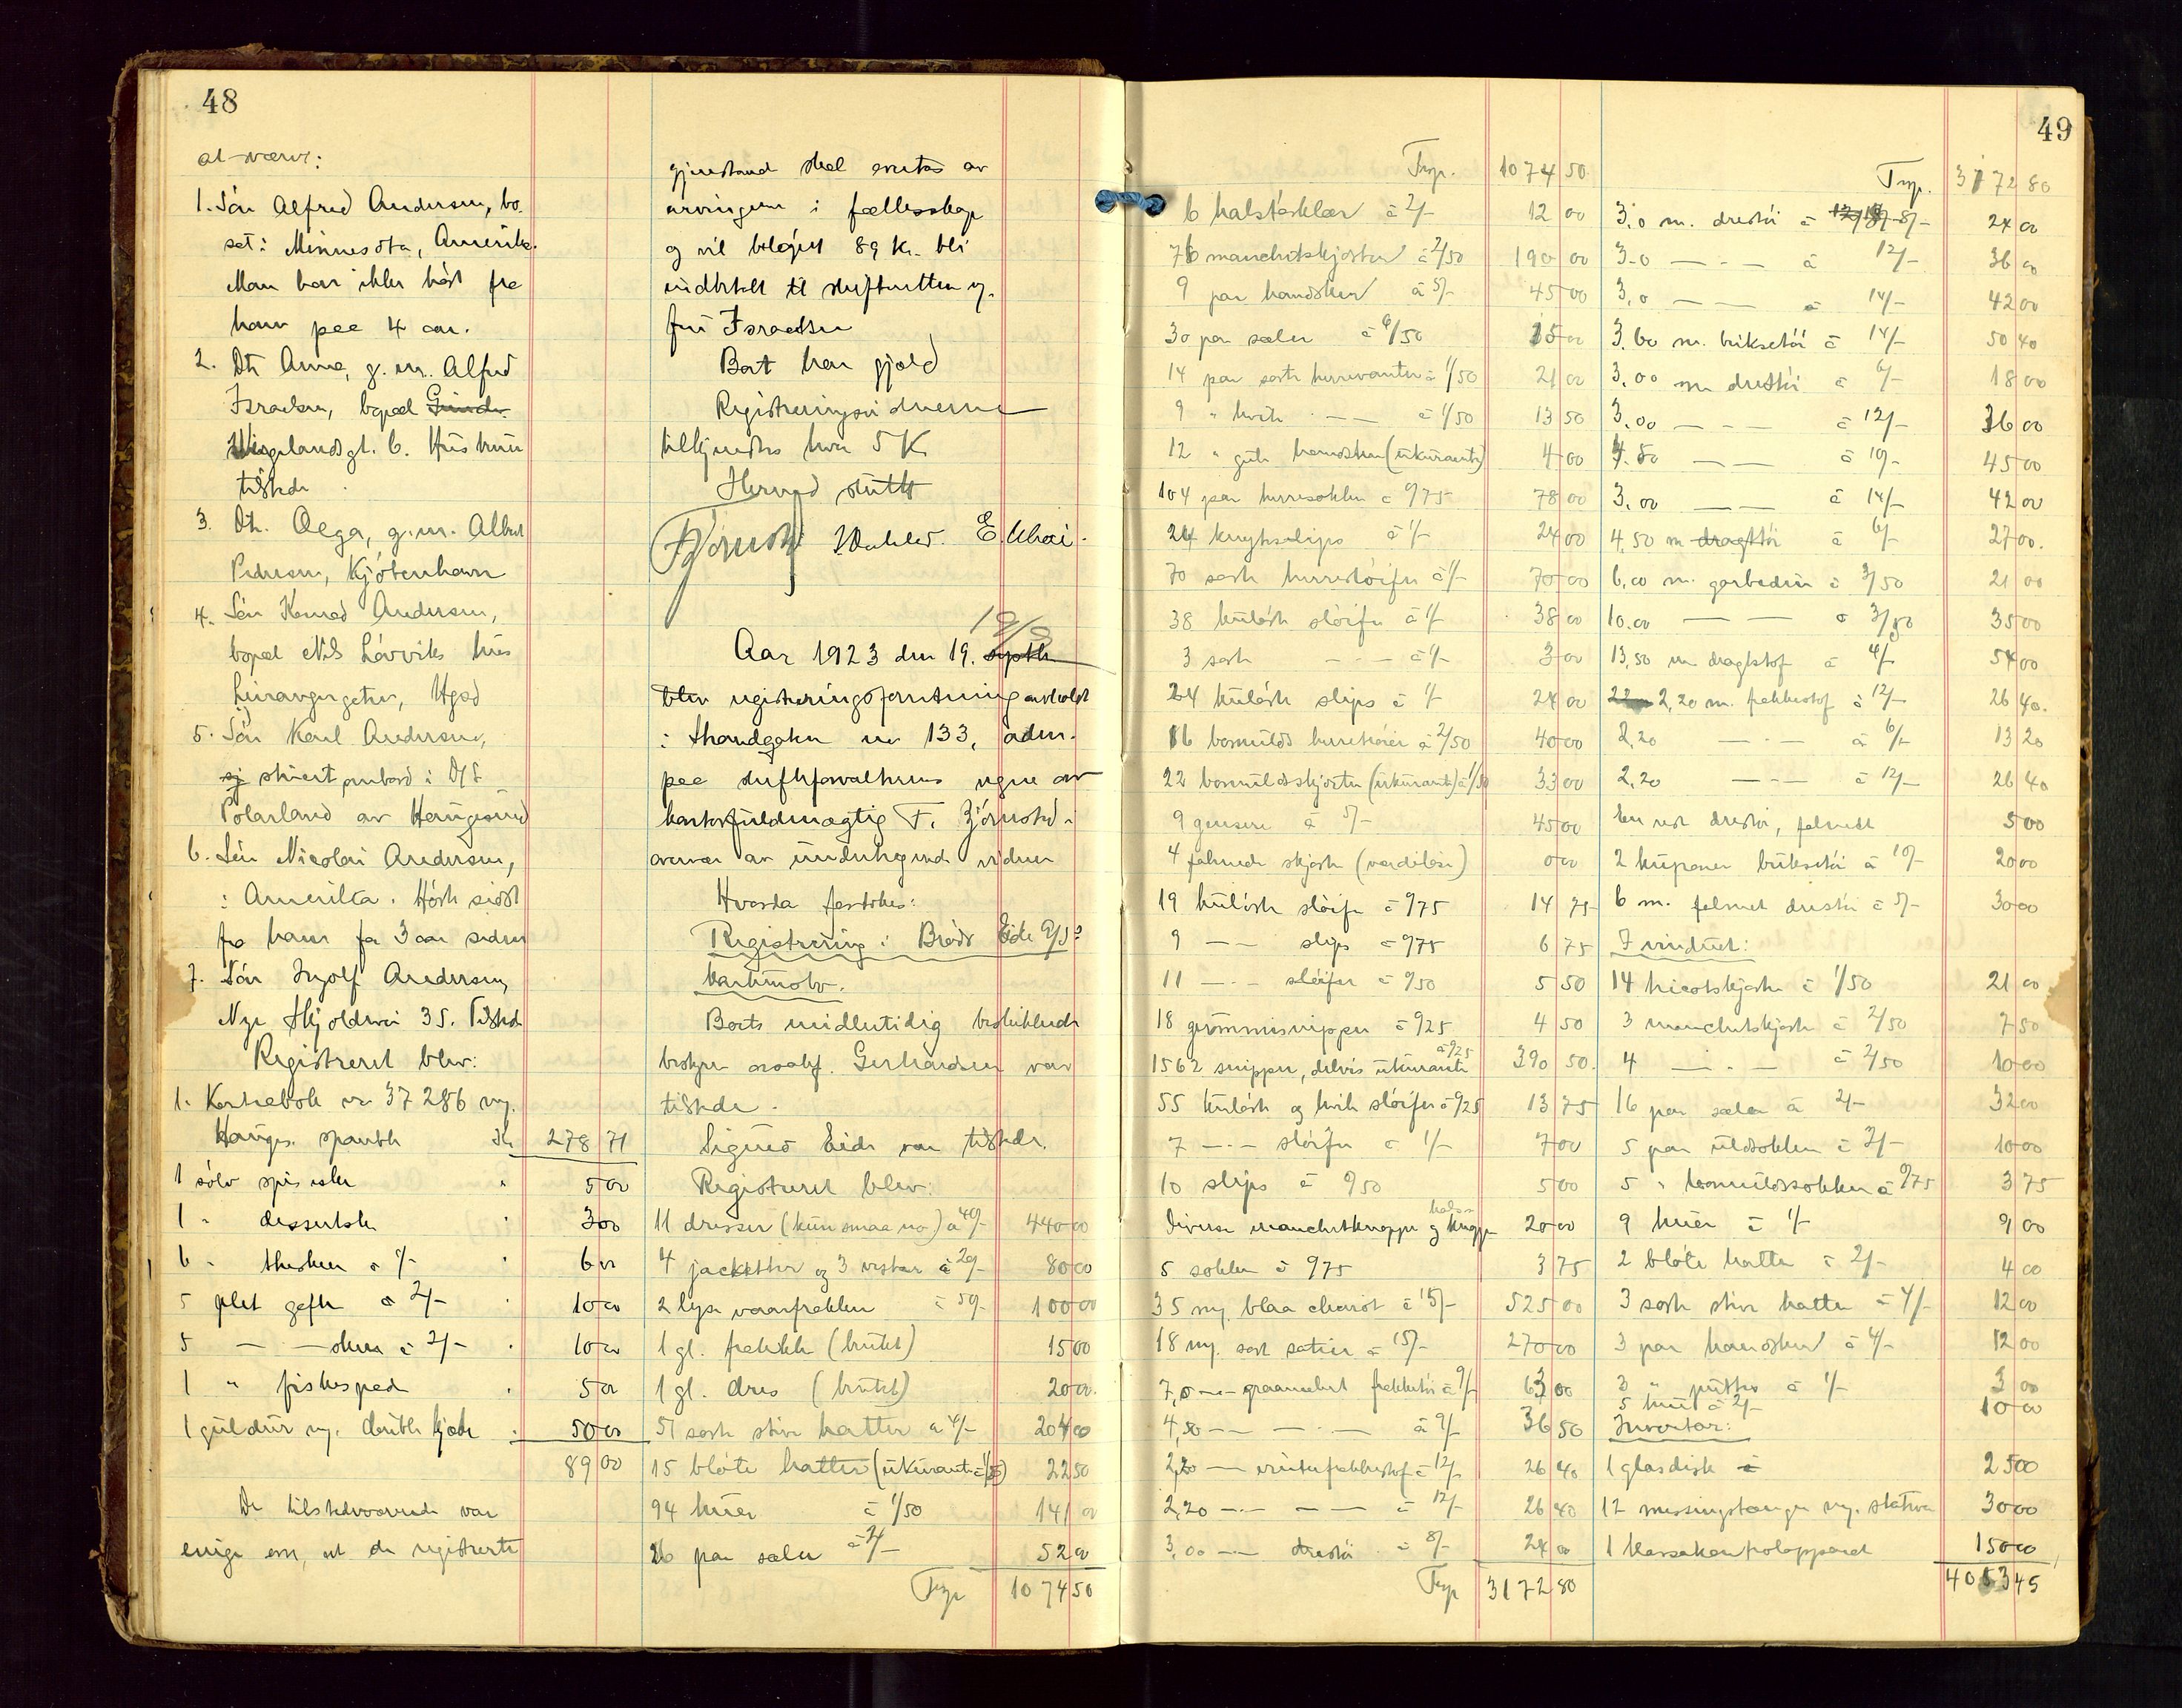 48
at være:
1. Sön Alfred Andersen, bo.
sat i Minnesota, Amerika.
Man har ikke hört fra
ham paa 4 aar.
2. Dtr Anna, g. m. Alfred
Israelsen, bopæl Grinde
Skigelandsgt. 6. Hus hun
tilstede.
3. Dtr. Olga, g. m. Albert
Pedersen, Kjöbenhavn
4. Sön Konrad Andersen,
bopæl Nils Lövviks hus
Leirangergaten, Hgsd
5. Sön Karl Andersen,
sj stuert ombord i D/S
Polarland av Haugesund
6. Sön Nicolai Andersen,
i Amerika. Hört sidst
fra ham for 3 aar siden
7. Sön Ingolf Andersen,
Nye Skjoldvei 35. Tilstede
Registreret blev:
1. Kontrabok nr 37286 m.
Hauges. sparebk Kr 278 71
1 sölv spiseske " 5 00
1 " dessertske " 3 00
6 " theskeer à 1/- " 6 00
5 plet gafler à 2/- " 10 00
5 — — skeer à 2/- " 10 00
1 " fiskespade " 5 00
1 guldur m. double kjede " 50 00
89 00
De tilstedeværende var
enige om, at de registrerte
gjenstande skal overtas av
arvingerne i fællesskap
og vil beløpet 89 kr. bli
indbetalt til skifteretten v.
fru Israelsen
Boet har gjæld
Registreringsvidnerne
tilkjendtes hver 5 K
Herved sluttet
E. Uhai.
19/9
Aar 1923 den 19. septbr
blev registreringsforretning avholdt
i Strandgaten nr 133, adm.
paa skifteforvalterens vegne av
kontorfuldmægtig F. Björnstad i
overvær av undertegnede vidner
Hvorda foretokes:
Registrering i Brödr Eide A/S's
konkursbo.
Boets midlertidig beskikkede
bestyrer ovsakf. Gerhardsen var
tilstede.
Sigurd Eide var tilstede.
Registreret blev:
11 dresser (kun smaa no) à 40/- 440 00
4 jacketter og 3 vester à 20/- 80 00
2 lyse vaarfrakker à 50/- 100 00
1 gl. frakke (brukt) 15 00
1 gl. dres (brukt) 20 00
51 sorte stive hatter à 4/- 204 00
15 blöte hatter (ukurante à 1/50) 22 50
94 huer à 1/50 141 00
26 par seler à 2/- 52 00
Trsp 1074 50
49
Trsp. 1074 50
6 halstörklær à 2/- 12 00
76 manchetskjorter à 2/50 190 00
9 par handsker à 5/- 45 00
30 par seler à 0/50 15 00
14 par sorte herrevanter à 1/50 21 00
9 " hvite — — à 1/50 13 50
12 " gule handsker (ukurante) 4 00
104 par herresokker à 0/75 78 00
24 knytteslips à 1/- 24 00
70 sorte herreslöifer à 1/- 70 00
38 kulörte slöifer à 1/- 38 00
3 sorte — - — à 1/- 3 00
24 kulörte slips à 1/- 24 00
16 bomulds herretröier à 2/50 40 00
22 bomuldsskjorter (ukurante) à 1/50 33 00
9 gensere à 5/- 45 00
4 falmede skjorter (værdiløse) 0 00
19 kulörte slöifer à 0/75 14 25
9 — — slips à 0/75 6 75
11 — - — slöifer à 0/50 5 50
18 gummisnipper à 0/25 4 50
1562 snipper, delvis ukurante à 0/25 390 50
55 kulörte og hvite slöifer à 0/25 13 75
7 — - — slöifer à 1/- 7 00
10 slips à 0/50 5 00
Diverse manchetknapper og halsknapper 20 00
5 sokker à 0/75 3 75
35 m. blaa cheviot à 15/- 525 00
18 m. sort satin à 15/- 270 00
7,0 — - — graamelert frakketöi à 9/- 63 00
4,50 — — — - — à 9/- 36 50
2,20 — vinterfrakkestof à 12/- 26 40
2,20 — - — — — à 12/- 26 40
3,00 — - — drestöi à 8/- 24 00
Trsp 3172 80
Trsp. 3172 80
3.0 m. drestöi à 12/- 8/- 24 00
3.0 — - — à 12/- 36 00
3.0 — — à 14/- 42 00
3.60 m. buksetöi à 14/- 50 40
3.00 m drestöi à 6/- 18 00
3.00 — - — à 12/- 36 00
4.50 — — à 10/- 45 00
3.00 — — à 14/- 42 00
4.50 m dragttöi à 6/- 27 00
6.00 m. garbedin à 3/50 21 00
10.00 — — à 3/50 35 00
13,50 m dragtstof à 4/- 54 00
22 2,20 m. frakkestof à 12/- 26 40
2,20 — - — à 6/- 13 20
2,20 — - — à 12/- 26 40
En rest drestöi, falmet 5 00
2 kuponer buksetöi à 10/- 20 00
6 m. falmet drestöi à 5/- 30 00
I vinduet:
14 tricotskjorter à 1/50 21 00
3 manchetskjorter à 2/50 7 50
4 — - — à 2/50 10 00
16 par seler à 2/- 32 00
5 par uldsokker à 2/- 10 00
5 " bomuldssokker à 0/75 3 75
9 huer à 1/- 9 00
2 blöte hatter à 2/- 4 00
3 sorte stive hatter à 4/- 12 00
3 par handsker à 4/- 12 00
3 " puttes à 1/- 3 00
5 huer à 2/- 10 00
Inventar:
1 glasdisk 25 00
12 messingstænger m. stativer 30 00
1 kassakontrolapparat 150 00
4053 45